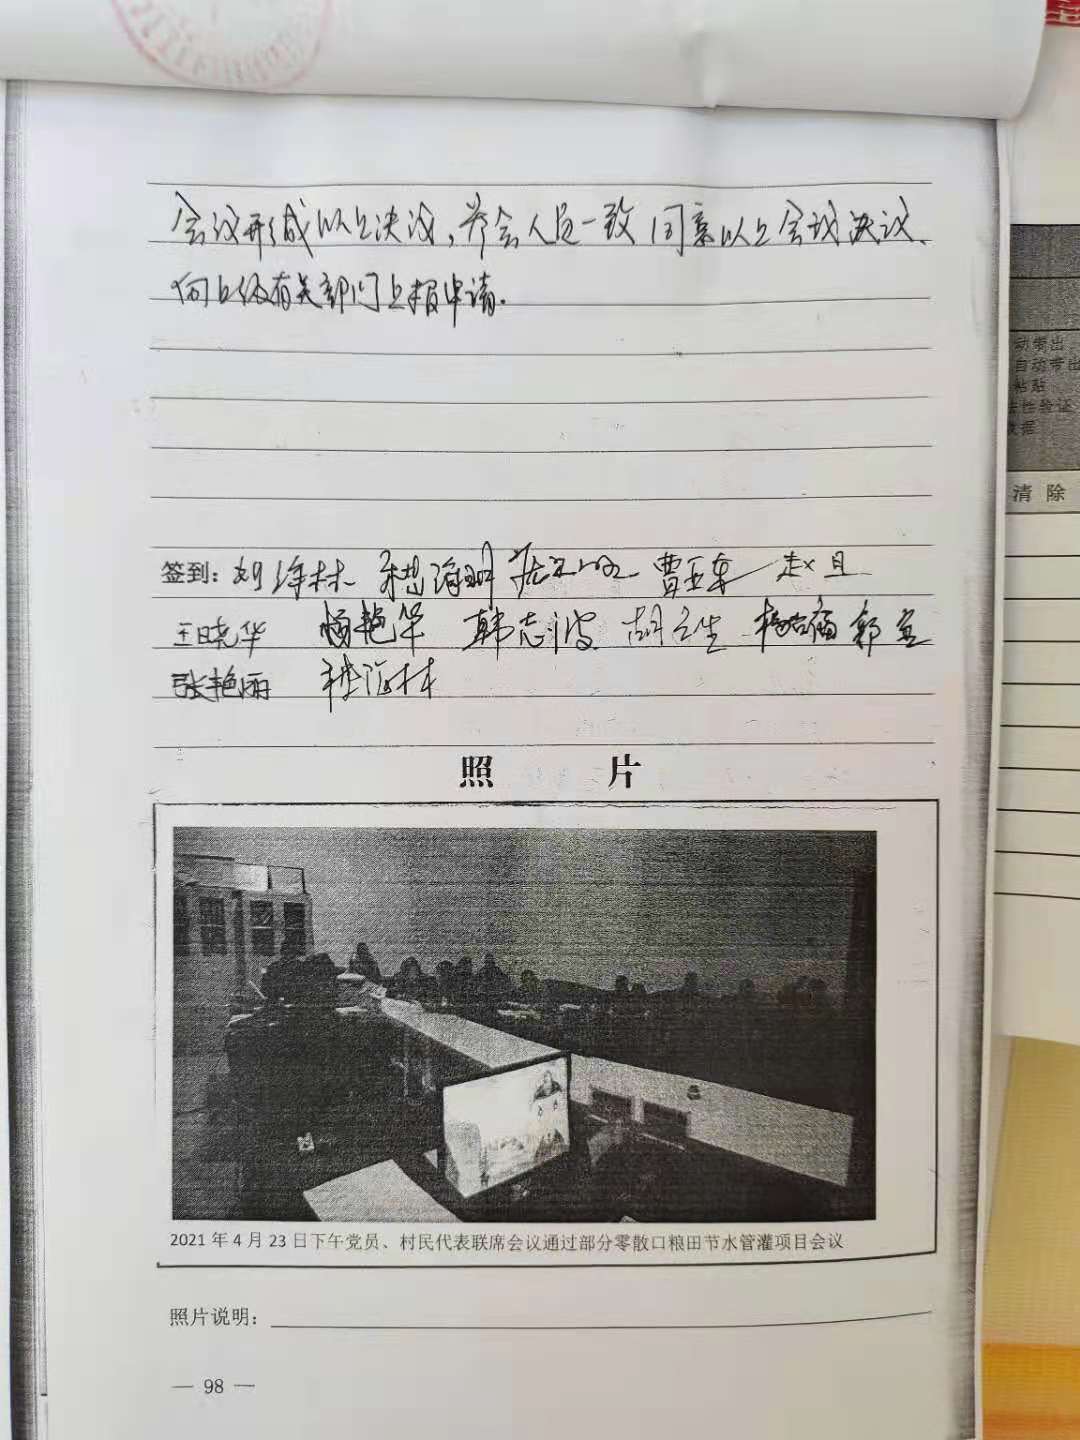 会议形成以上决议，参会人员一致同意以上会议决议、
向上级有关部门上报申请.
签到: 曹亚东 赵旦
王晓华 杨艳华 韩志波 郭宣
张艳丽
照 片
2021 年 4 月 23 日下午党员、村民代表联席会议通过部分零散口粮田节水管灌项目会议
照片说明:
— 98 —
动带出
自动带出
粘贴
性验证
数据
清 除